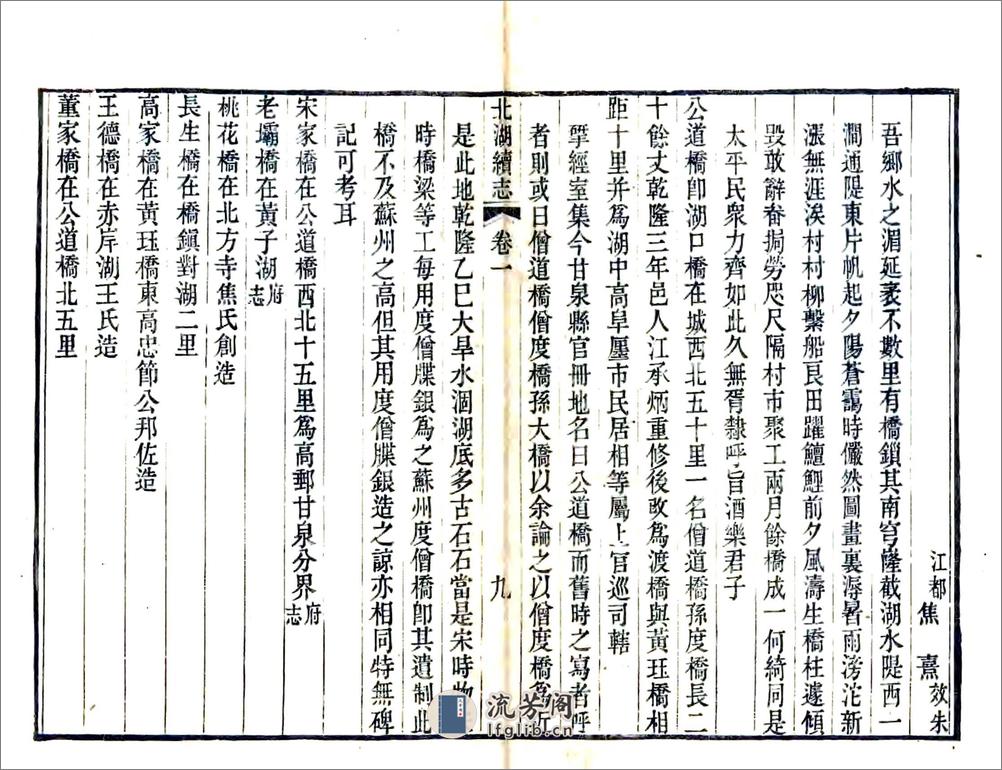 江都焦熹效朱
吾鄉水之湄延袤不數里有橋鎖其南穹隆截湖水隄西一
澗通隄東片帆起夕陽蒼靄時儼然圖畫裏溽暑雨滂沱新
漲無涯涘村村柳繫船艮田躍鱣鯉前夕風濤生橋柱遽傾
毀敢辭畚挶勞咫尺隔村市聚工兩月餘橋成一何綺同是
太平民衆力齊如此久無胥隸呼旨酒樂君子
公道橋卽湖口橋在城西北五十里一名僧道橋孫度橋長二
十餘丈乾隆三年邑人江承炳重修後改爲渡橋與黃珏橋相
距十里并爲湖中高阜廛市民居相等屬上官巡司轄
揅經室集今甘泉縣官冊地名曰公道橋而舊時之寫者呼
者則或曰僧道橋僧度橋孫大橋以余論之以僧度橋爲近
北湖續志 卷一 九
是此地乾隆乙巳大旱水涸湖底多古石石當是宋時物
時橋梁等工每用度僧牒銀爲之蘇州度僧橋卽其遺制此
橋不及蘇州之高但其用度僧牒銀造之諒亦相同特無碑
記可考耳
宋家橋在公道橋西北十五里爲高郵甘泉分界府志
老壩橋在黃子湖府志
桃花橋在北方寺焦氏創造
長生橋在橋鎭對湖二里
高家橋在黃珏橋東高忠節公邦佐造
王德橋在赤岸湖王氏造
董家橋在公道橋北五里
流芳阁
lfglib.com